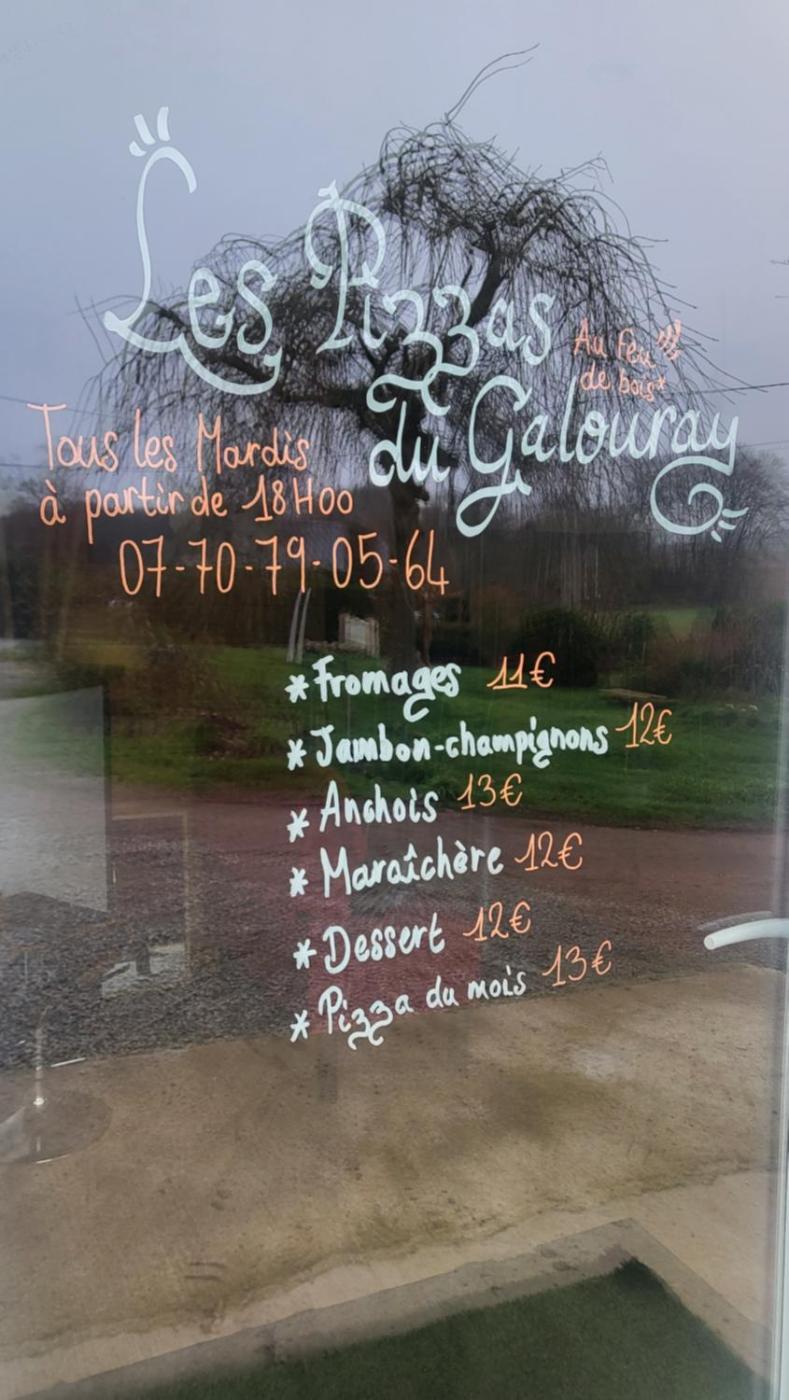 Les Pizzas
Au feu
de bois*
du Galouray
Tous les Mardis
à partir de 18H00
07-70-79-05-64
*Fromages 11€
*Jambon-champignons 12€
*Anchois 13€
*Maraîchère 12€
*Dessert 12€
*Pizza du mois 13€